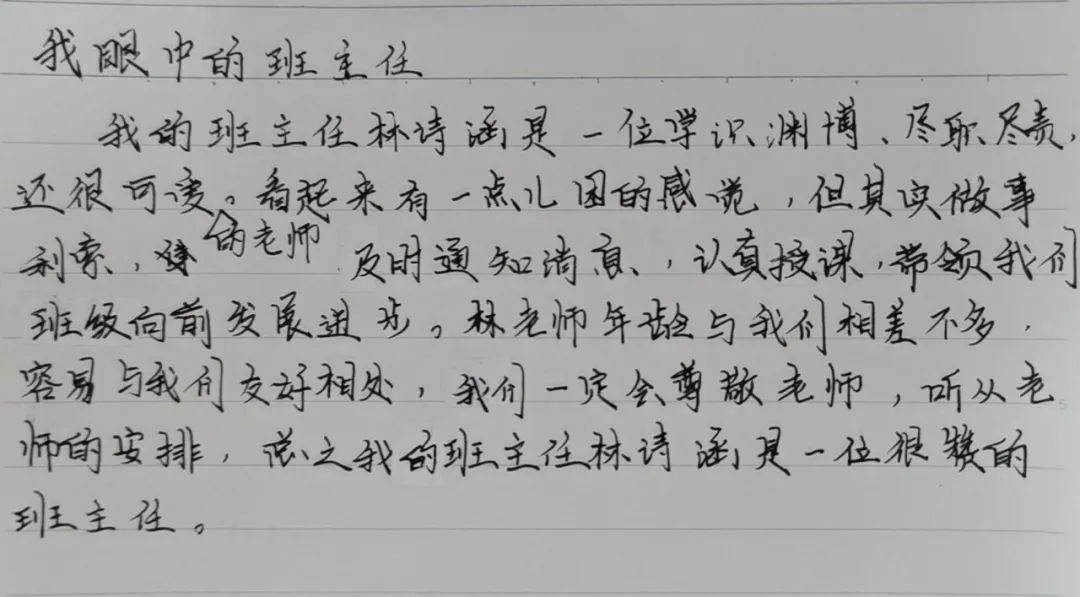 我眼中的班主任
我的班主任林诗涵是一位学识渊博、尽职尽责，
还很可爱的老师。看起来有一点儿困的感觉，但其实做事
利索，及时通知消息，认真授课，带领我们
班级向前发展进步。林老师年龄与我们相差不多，
容易与我们友好相处，我们一定会尊敬老师，听从老
师的安排，总之我的班主任林诗涵是一位很棒的
班主任。